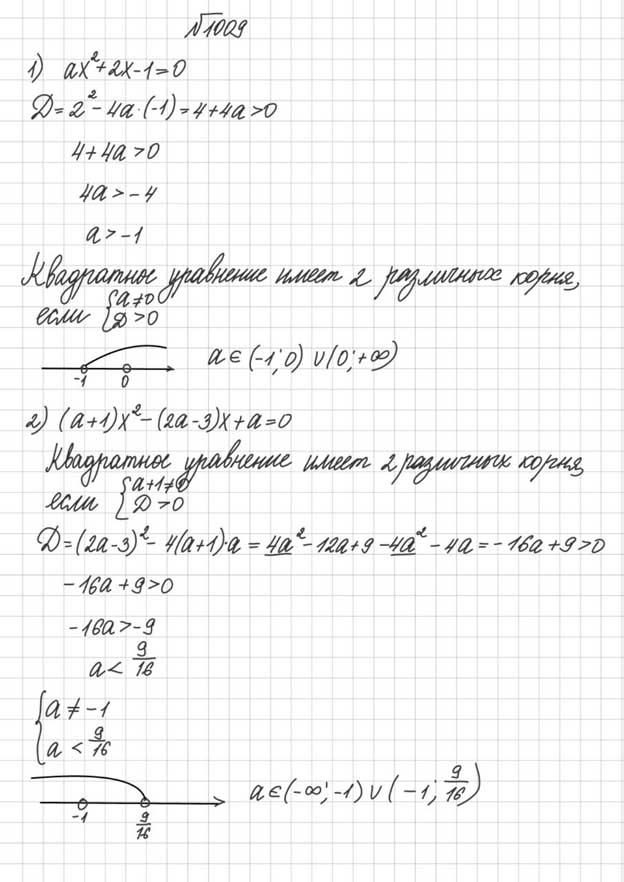 №1009
1) ax²+2x-1=0
D=2²-4a·(-1)=4+4a>0
4+4a>0
4a>-4
a>-1
Квадратное уравнение имеет 2 различных корня,
если {a≠0
D>0
-1 0 a∈(-1;0)∪(0;+∞)
2) (a+1)x²-(2a-3)x+a=0
Квадратное уравнение имеет 2 различных корня,
если {a+1≠0
D>0
D=(2a-3)²-4(a+1)·a=4a²-12a+9-4a²-4a=-16a+9>0
-16a+9>0
-16a>-9
a<9/16
{a≠-1
a<9/16
-1 9/16 a∈(-∞;-1)∪(-1;9/16)